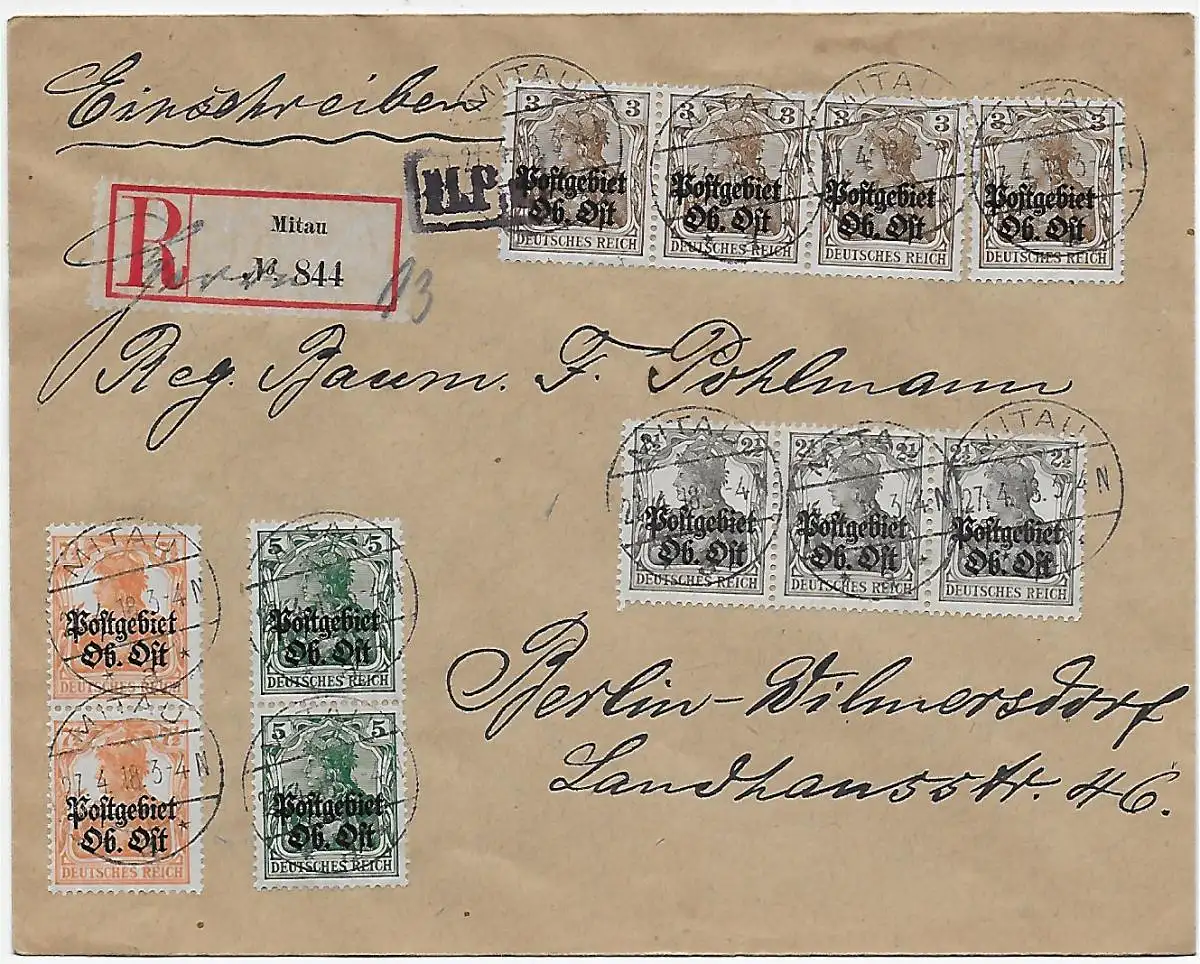 Einschreiben
MITAU MITAU MITAU MITAU
3 3 3 3 3 3 3
Postgebiet Postgebiet Postgebiet Postgebiet
Ob. Ost Ob. Ost Ob. Ost Ob. Ost
DEUTSCHES REICH DEUTSCHES REICH DEUTSCHES REICH DEUTSCHES REICH
R Mitau
№ 844
13
Reg. Baum. F. Pohlmann
MITAU MITAU MITAU
2½ 2½ 2½ 2½ 2½
27.4.18.3-4N
Postgebiet Postgebiet Postgebiet
Ob. Ost Ob. Ost Ob. Ost
DEUTSCHES REICH DEUTSCHES REICH DEUTSCHES REICH
MITAU
5 5
Postgebiet Postgebiet
Ob. Ost Ob. Ost
DEUTSCHES REICH DEUTSCHES REICH
Berlin-Wilmersdorf
MITAU
5 5
27.4.18.3-4N
Postgebiet Postgebiet
Ob. Ost Ob. Ost
DEUTSCHES REICH DEUTSCHES REICH
Landhausstr. 46.